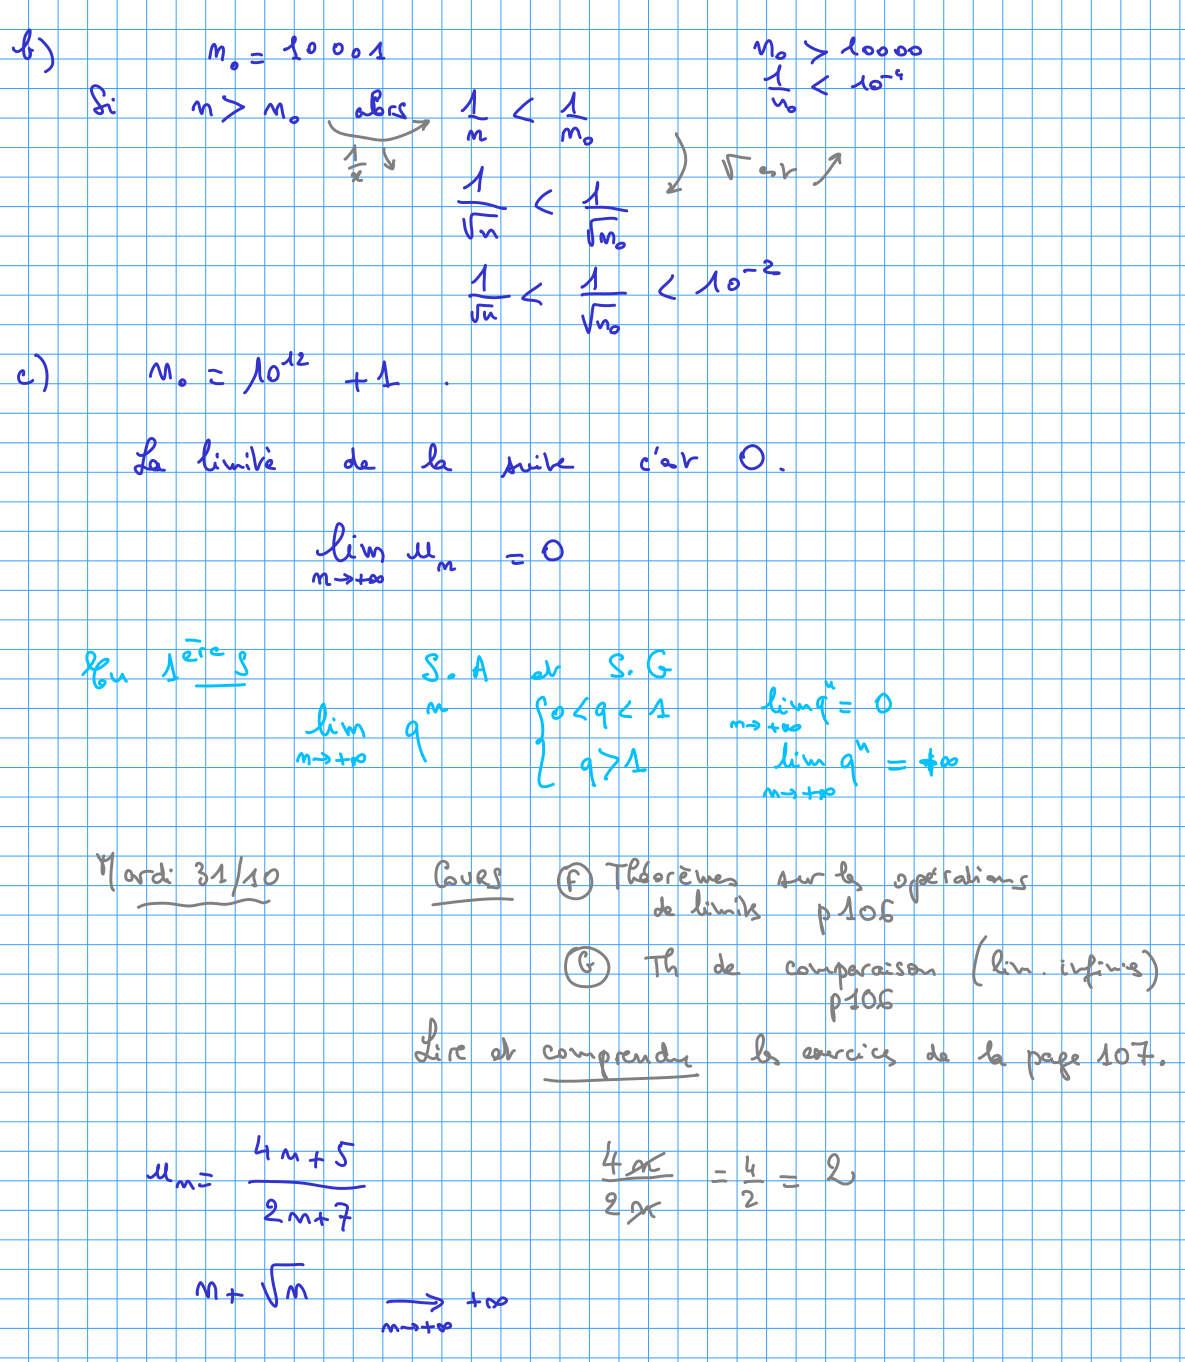 b) n₀ = 10001 n₀ > 10000
Si n > n₀ alors 1/n < 1/n₀ 1/n₀ < 10⁻⁴
1/x ↘ √ est ↗
1/√n < 1/√n₀
1/√n < 1/√n₀ < 10⁻²
c) n₀ = 10¹² + 1 .
La limite de la suite c'est 0.
lim uₙ = 0
n→+∞
En 1ère S S.A et S.G
lim qⁿ { 0 < q < 1 lim qⁿ = 0
n→+∞ n→+∞
q > 1 lim qⁿ = +∞
n→+∞
Mardi 31/10 Cours Ⓕ Théorèmes sur les opérations
de limites p106
Ⓖ Th de comparaison (lim. infinies)
p106
Lire et comprendre les exercices de la page 107.
uₙ = (4n+5)/(2n+7) 4n/2n = 4/2 = 2
n + √n ⟶ +∞
n→+∞